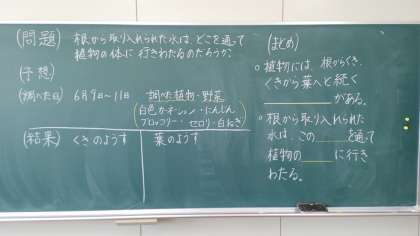 (問題) 根から取り入れられた水は、どこを通って
植物の体に行きわたるのだろうか?
(予想)
(調べた日) 6月9日〜11日 調べた植物・野菜
(白色カーネーション・にんじん
ブロッコリー・セロリ・白ねぎ)
(結果) くきのようす 葉のようす
(まとめ)
○植物には、根からくき、
くきから葉へと続く
がある。
○根から取り入れられた
水は、この を通って
植物の に行き
わたる。